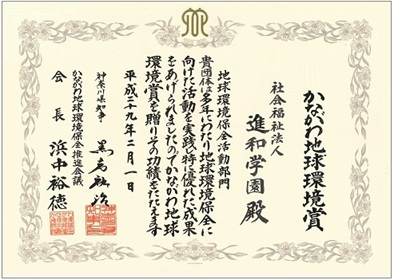 かながわ地球環境賞
社会福祉法人
進和学園殿
地球環境保全活動部門
貴団体は多年にわたり地球環境保全に
向けた活動を実践し特に優れた成果
をあげられましたのでかながわ地球
環境賞を贈りその功績をたたえます
平成二十九年二月一日
神奈川県知事 黒岩祐治
かながわ地球環境保全推進会議
会長 浜中裕徳